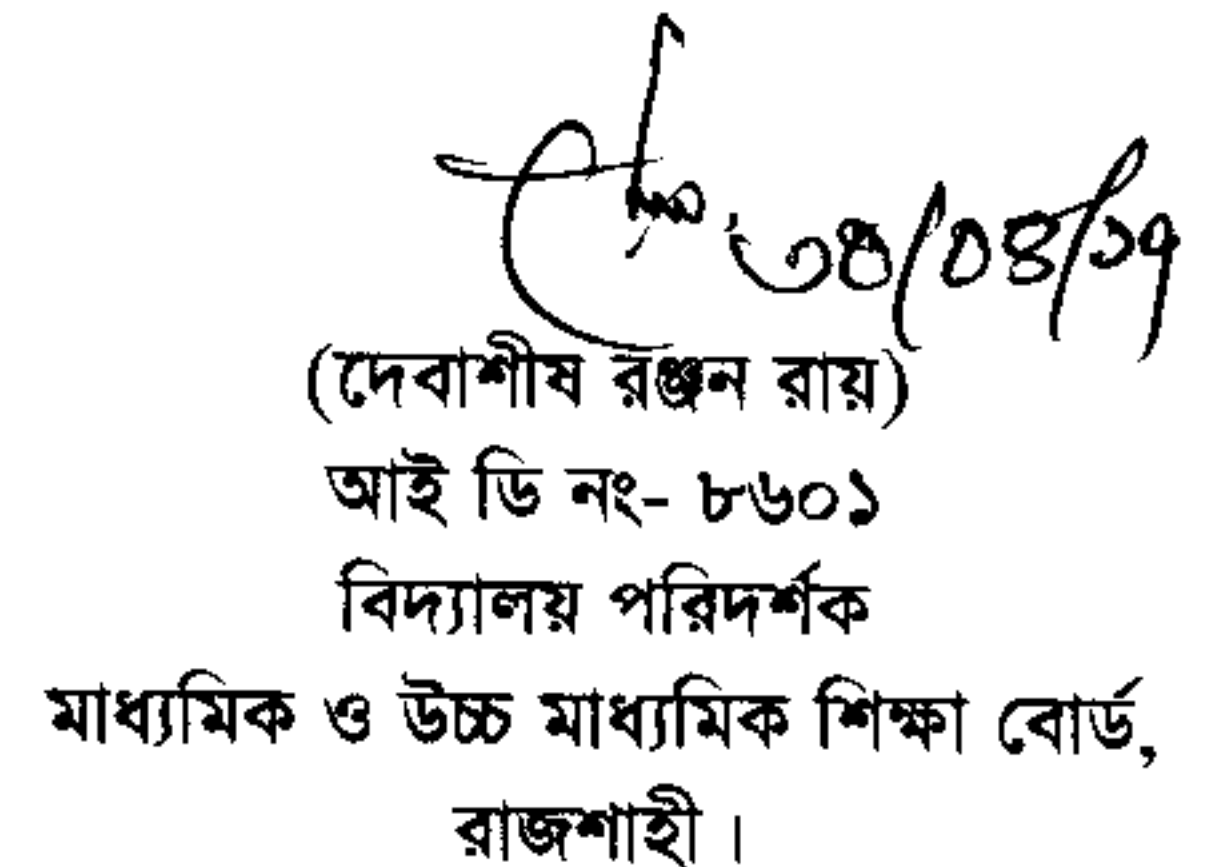 (দেবাশীষ রঞ্জন রায়)
আই ডি নং- ৮৬০১
বিদ্যালয় পরিদর্শক
মাধ্যমিক ও উচ্চ মাধ্যমিক শিক্ষা বোর্ড,
রাজশাহী।